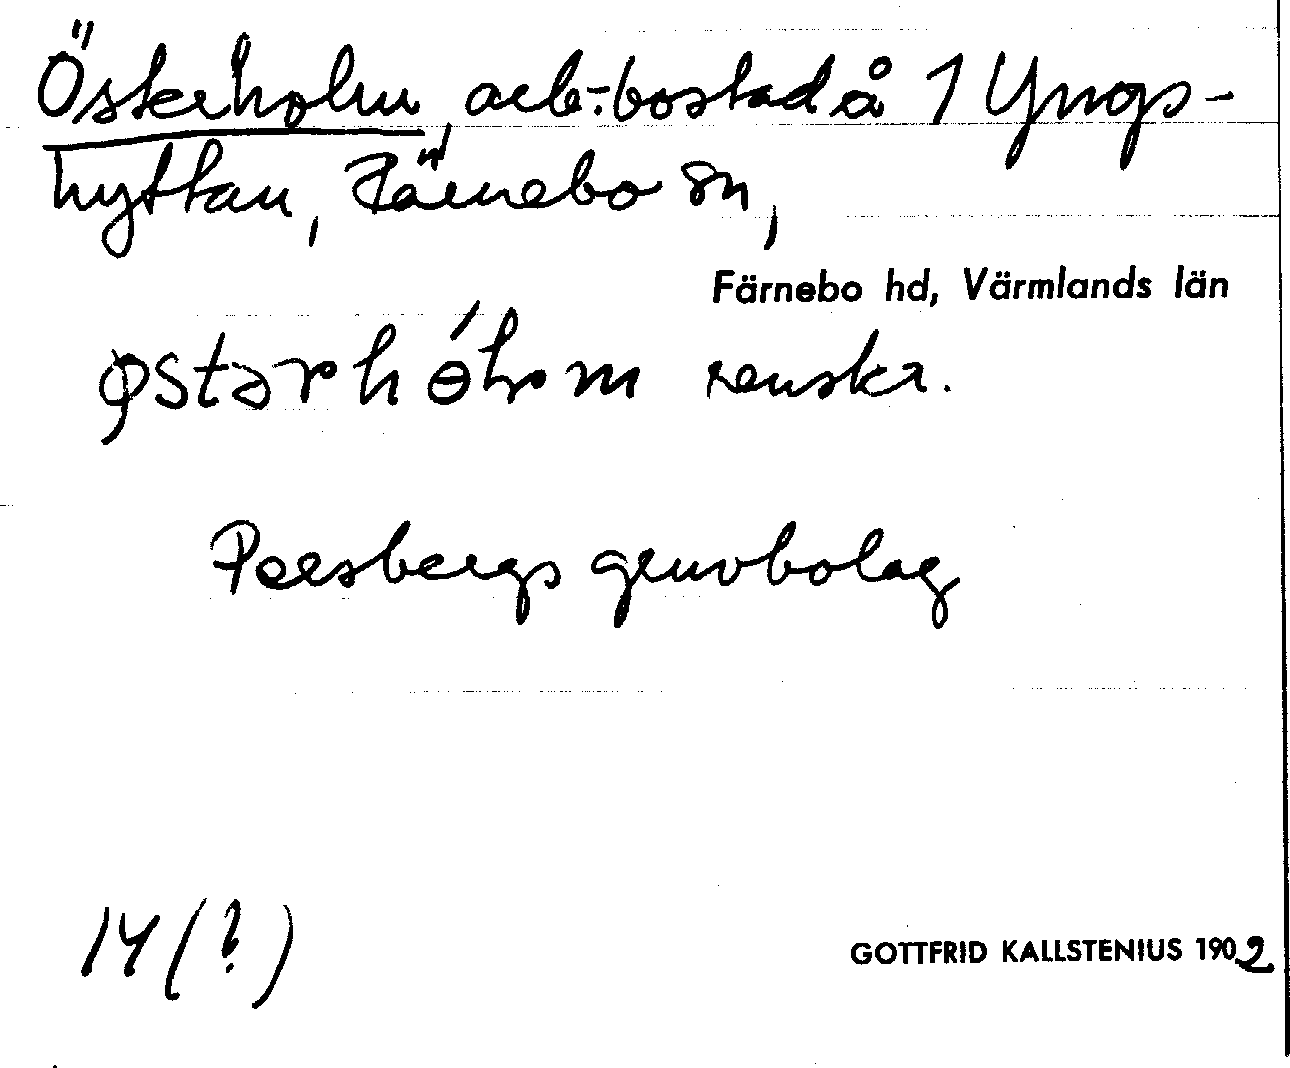 Österholm, arb.-bostad å 1 Yngs-
hyttan, Färnebo sn,
Färnebo hd, Värmlands län
renskr.
Persbergs gruvbolag
14 (?)
GOTTFRID KALLSTENIUS 1902